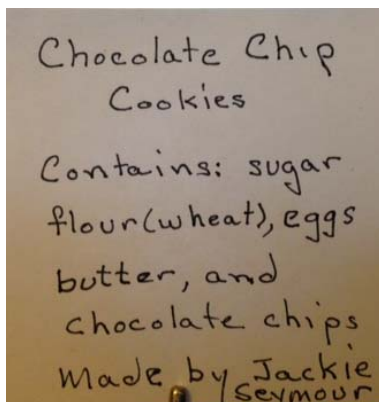 Chocolate Chip
Cookies
Contains: sugar
flour(wheat), eggs
butter, and
chocolate chips
Made by Jackie
Seymour